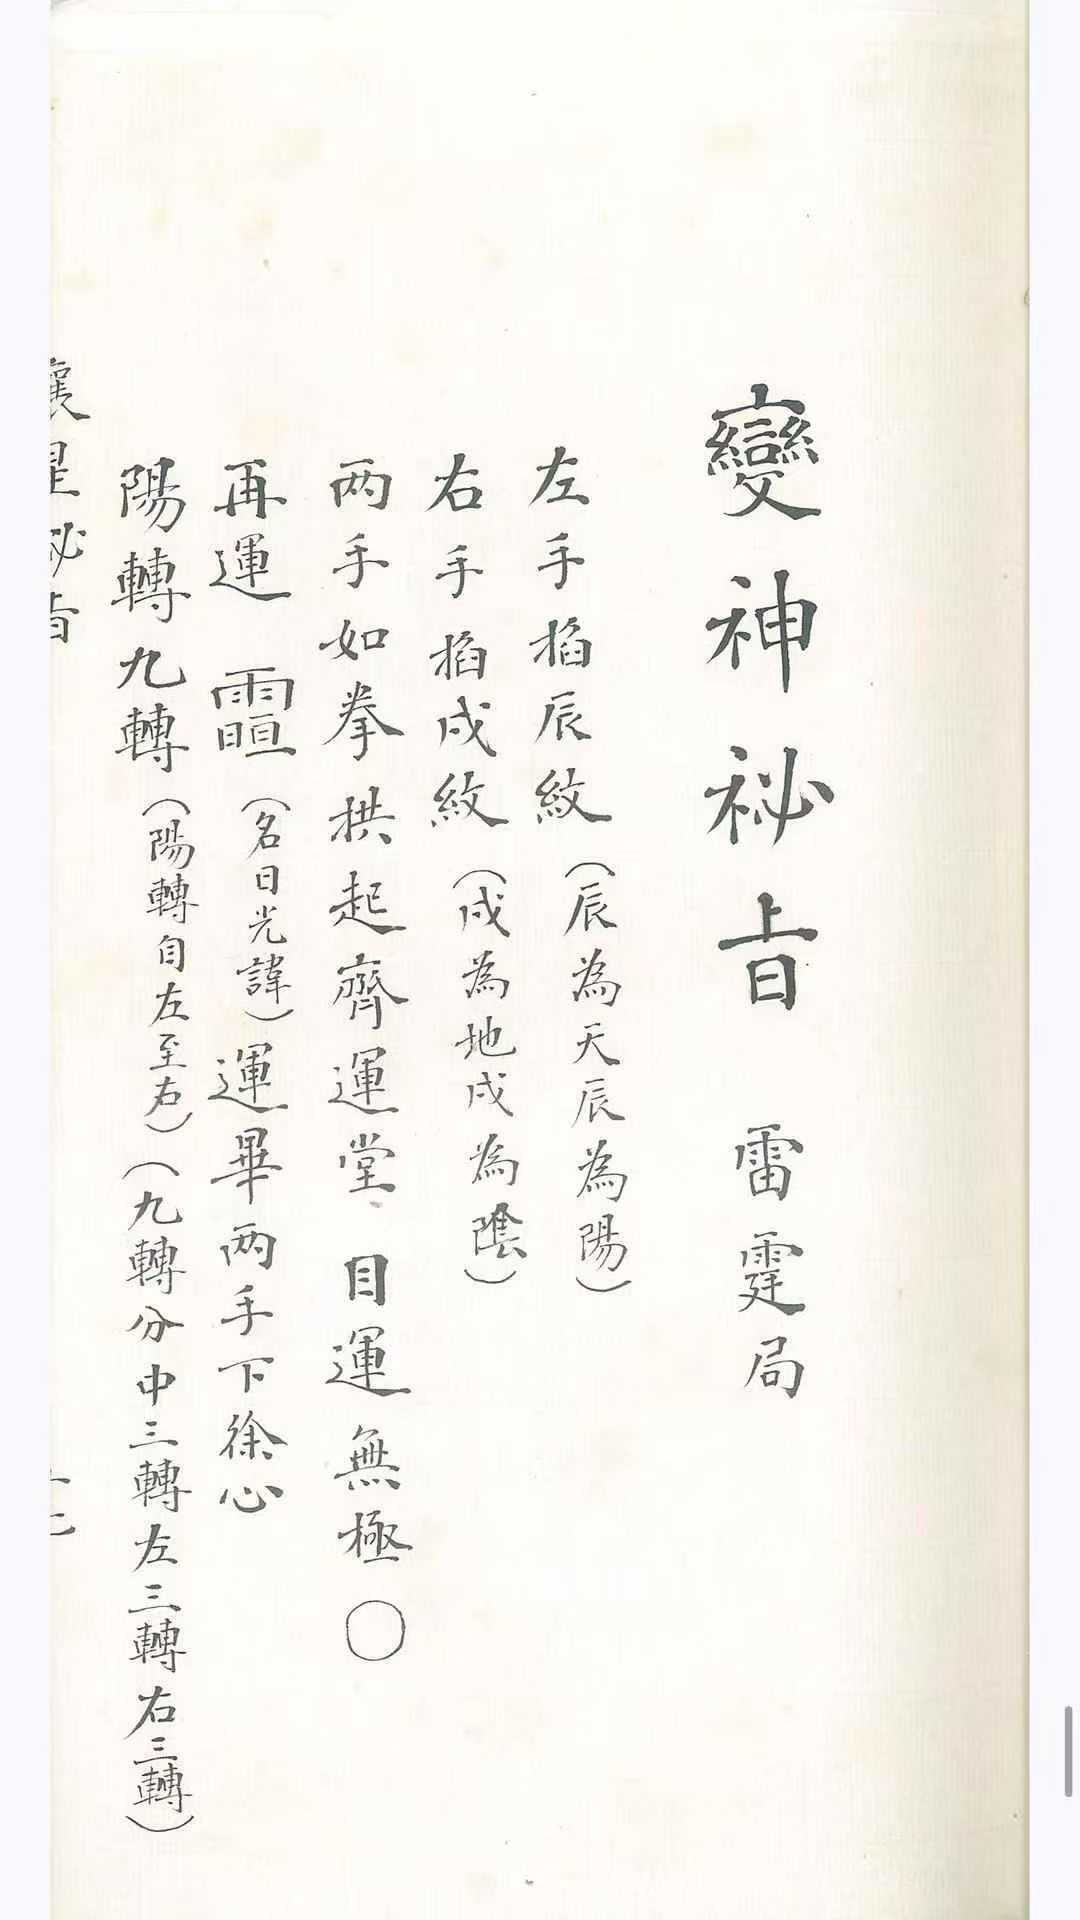 變神祕旨　雷霆局
左手掐辰紋（辰為天辰為陽）
右手掐戌紋（戌為地戌為陰）
两手如拳拱起齊運堂、目運無極〇
再運　䨻（名日光諱）運畢两手下徐心
陽轉九轉（陽轉自左至右）（九轉分中三轉左三轉右三轉）
禳星祕旨